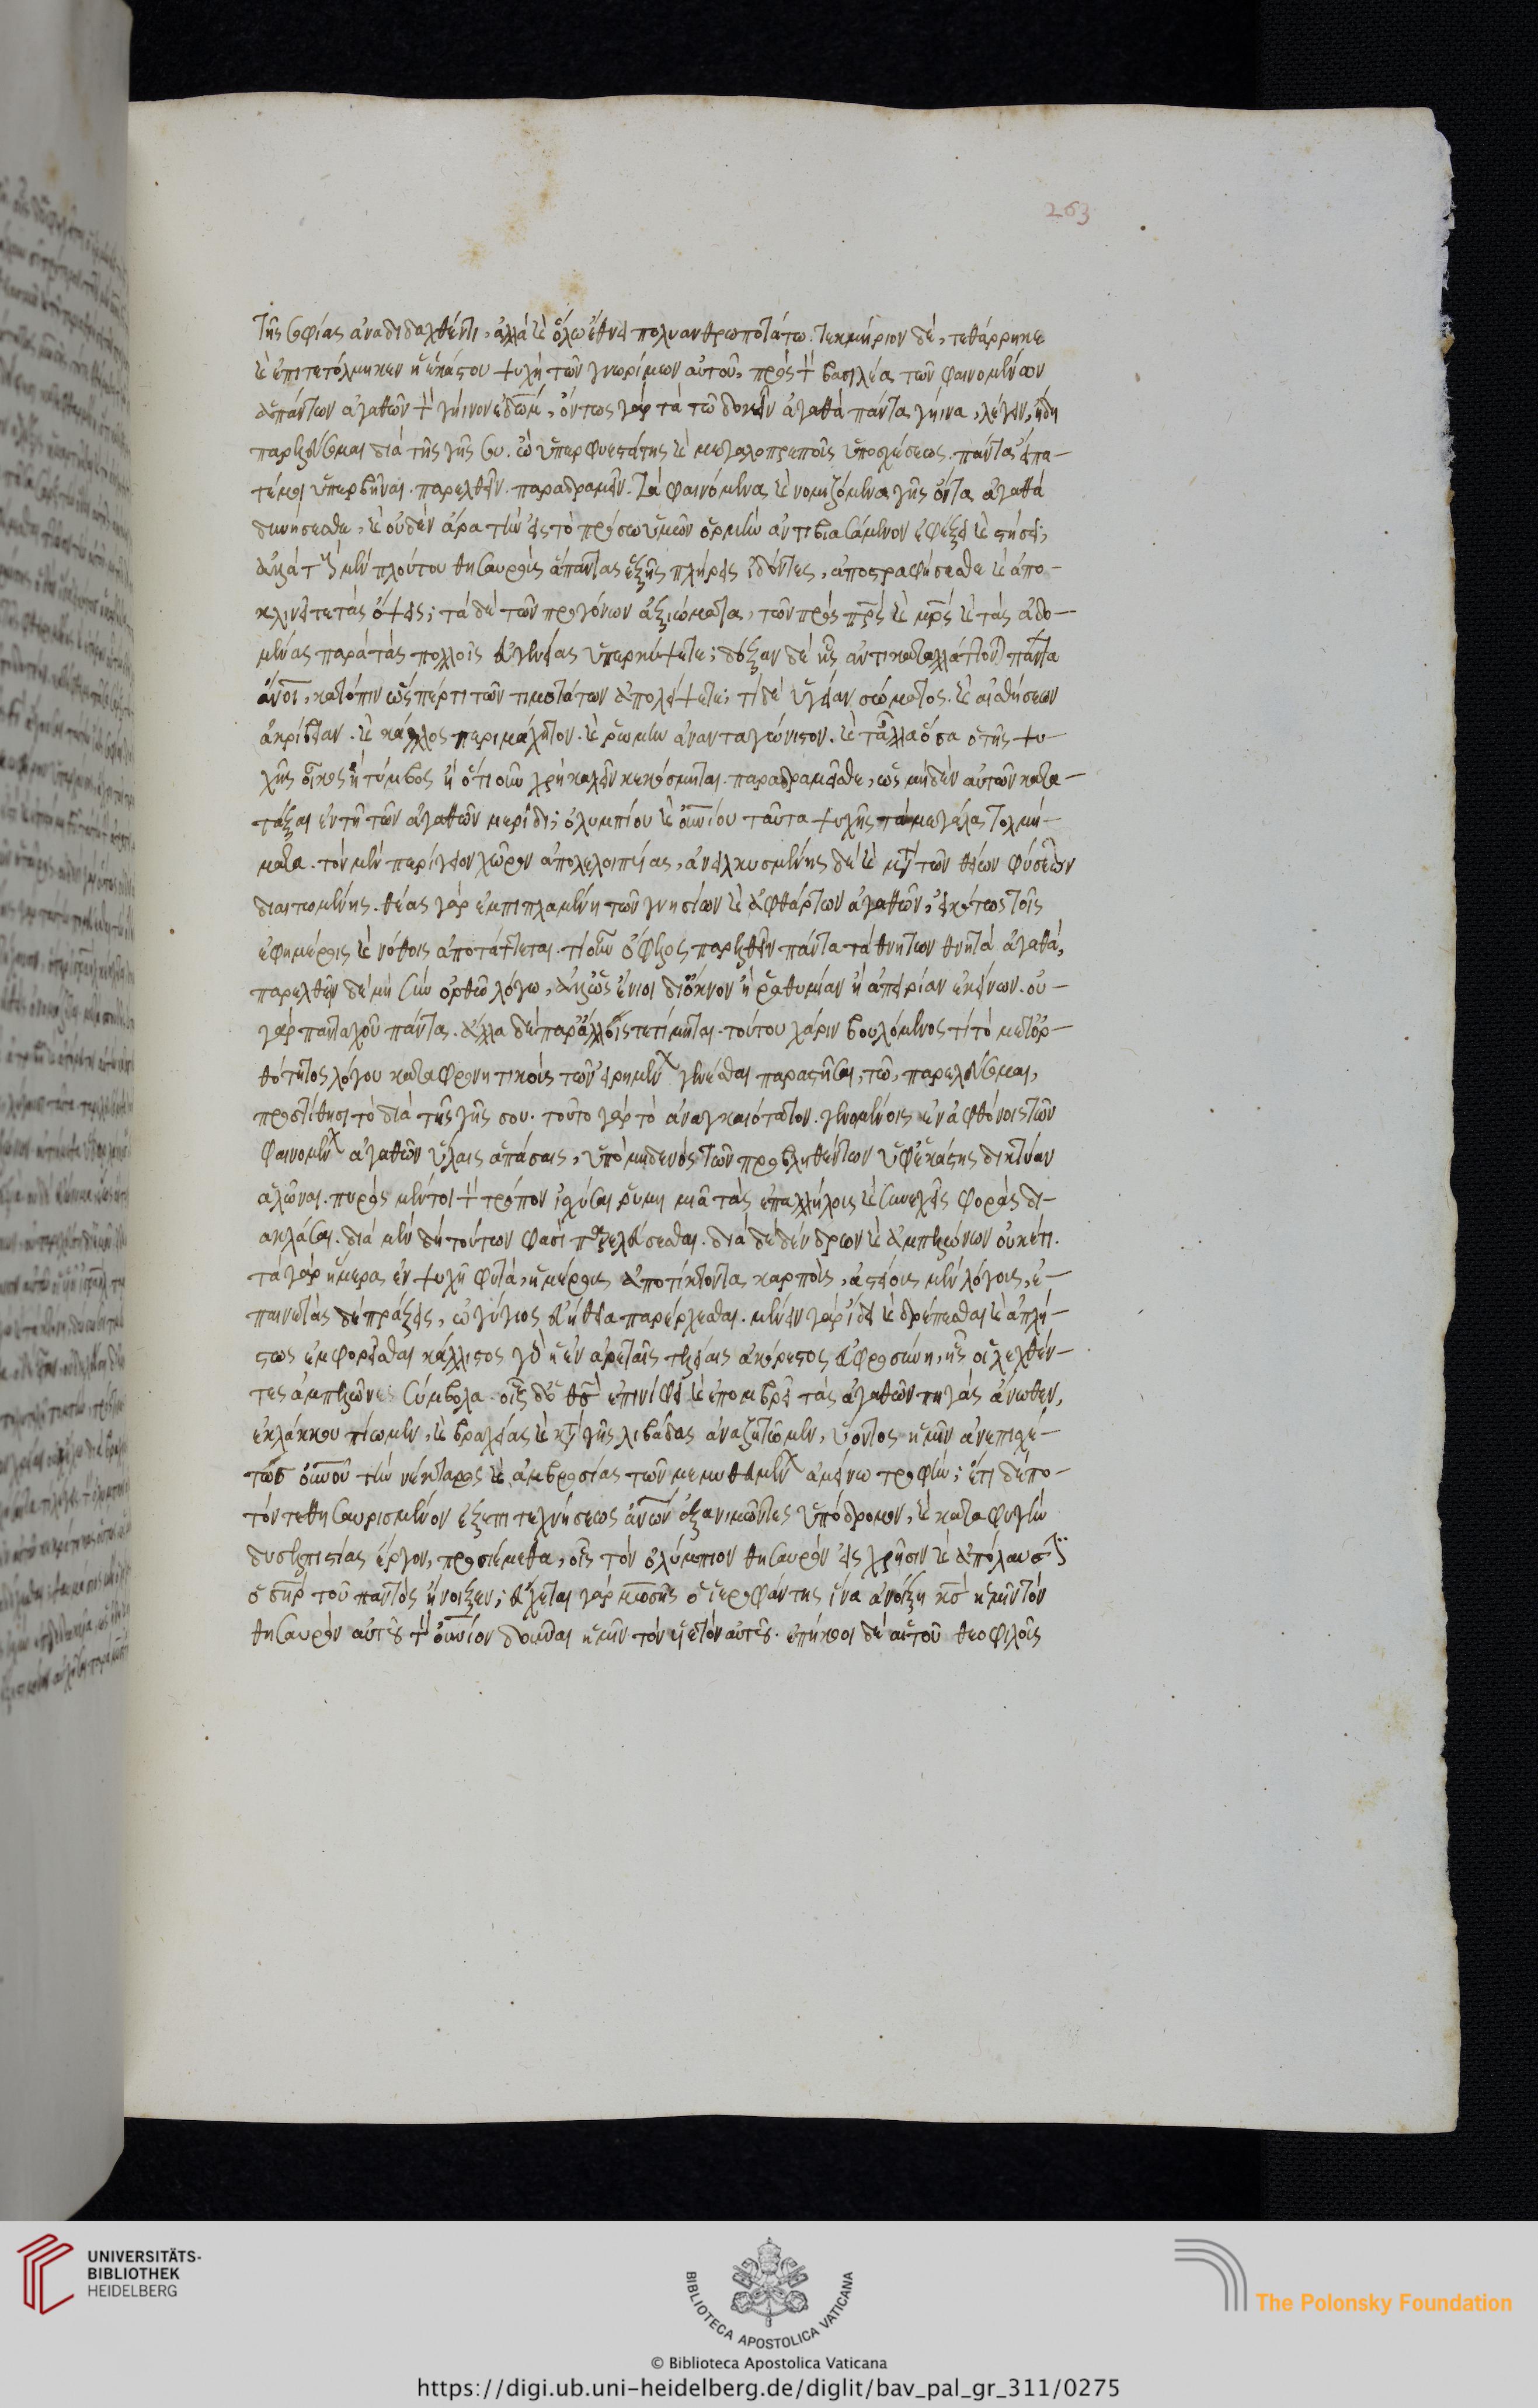 τῆς σοφίας ἀναδιδαχθέντι, ἀλλὰ καὶ ὅλω ἔθνει πολυανθρωποτάτω. τεκμήριον δέ, τεθάρρηκε
καὶ ἐπιτετόλμηκεν ἡ ἑκάστου ψυχὴ τῶν γνωρίμων αὐτοῦ, πρὸς τὸν βασιλέα τῶν φαινομένων
ἁπάντων ἀγαθῶν τὸν γήινον ἐδώμ, ὄντως γὰρ τὰ τῶ δοκεῖν ἀγαθὰ πάντα γήινα, λέγειν, ἤδη
παρελεύσομαι διὰ τῆς γῆς σου. ὢ ὑπερφυεστάτης καὶ μεγαλοπρεποῦς ὑποσχέσεως. πάντα εἴπα-
τέ μοι ὑπερβῆναι. παρελθεῖν. παραδραμεῖν. τὰ φαινόμενα καὶ νομιζόμενα γῆς ὄντα ἀγαθὰ
δυνήσεσθε, καὶ οὐδὲν ἄρα τὴν εἰς τὸ πρόσω ὑμῶν ὁρμὴν ἀντιβιασάμενον ἐφέξει καὶ στήσει;
ἀλλὰ τοὺς μὲν πλούτου θησαυροὺς ἅπαντας ἑξῆς πλήρεις ἰδόντες, ἀποστραφήσεσθε καὶ ἀπο-
κλινεῖτε τὰς ὄψεις; τὰ δὲ τῶν προγόνων ἀξιώματα, τῶν πρὸς πρς καὶ μρς καὶ τὰς ἀδο-
μένας παρὰ τὰς πολλοῖς εὐγενείας ὑπερκύψετε; δόξαν δὲ ἧς ἀντικαταλλάττονται πάντα
ἄνοι, κατόπιν ὥσπέρ τι τῶν τιμοτάτων ἀπολείψετε; τί δὲ ὑγείαν σώματος. καὶ αἰσθήσεων
ἀκρίβειαν. καὶ κάλλος περιμάχητον. καὶ ῥώμην ἀνανταγώνιστον. καὶ τἄλλα ὅσα ὁ τῆς ψυ-
χῆς οἶκος ἢ τύμβος ἢ ὅτι οὖν χρὴ καλεῖν κεκόσμηται. παραδραμεῖσθε, ὡς μηδὲν αὐτῶν κατα-
τάξαι ἐν τῆ τῶν ἀγαθῶν μερίδι; ὀλυμπίου καὶ οὐνίου ταῦτα ψυχῆς τὰ μεγάλα τολμή-
ματα. τὸν μὲν περίγειον χῶρον ἀπολελοιπυίας, ἀνειλκυσμένης δὲ καὶ μετὰ τῶν θείων φύσεων
διαιτωμένης. θέας γὰρ ἐμπιπλαμένη τῶν γνησίων καὶ ἀφθάρτων ἀγαθῶν, εἰκότως τοῖς
ἐφημέροις καὶ νόθοις ἀποτάττεται. τί οὖν ὄφελος παρελθεῖν πάντα τὰ θνητῶν θνητὰ ἀγαθά,
παρελθεῖν δὲ μὴ σὺν ὀρθῶ λόγω, ἀλλ' ὡς ἔνιοι δι' ὄκνον ἢ ῥαθυμίαν ἢ ἀπειρίαν ἐκείνων. οὐ-
γὰρ πανταχοῦ πάντα. ἀλλὰ δὲ παρ' ἄλλοις τετίμηται. τούτου χάριν βουλόμενος τί τὸ μετ' ὀρ-
θότητος λόγου καταφρονητικοὺς τῶν εἰρημένων γενέσθαι παραστῆσαι, τῶ, παρελεύσομαι,
προστίθησι τὸ διὰ τῆς γῆς σου. τοῦτο γὰρ τὸ ἀναγκαιότατον. γενομένοις ἐν ἀφθόνοις τῶν
φαινομένων ἀγαθῶν ὕλαις ἁπάσαις, ὑπὸ μηδενὸς τῶν προβληθέντων ὑφ' ἑκάστης δικτύων
ἁλῶναι. πυρὸς μέντοι τὸν τρόπον ἰσχῦσαι ῥύμη μιᾶ τὰς ἐπαλλήλοις καὶ συνεχεῖς φορὰς δι-
ακλάσαι. διὰ μὲν δὴ τούτων φασὶ παρελεύσεσθαι. διὰ δὲ δένδρων καὶ ἀμπελώνων οὐκέτι.
τὰ γὰρ ἥμερα ἐν ψυχῆ φυτά, ἡμέρους ἀποτίκτοντα καρποὺς, ἀστείους μὲν λόγους, ἐ-
παινετὰς δὲ πράξεις, ὠγύγιος εὐήθεια παρέρχεσθαι. μένειν γὰρ ἔδει καὶ δρέπεσθαι καὶ ἀπλή-
στως ἐμφορεῖσθαι κάλλιστος γὰρ ἡ ἐν ἀρεταῖς τελείαις ἀκόρεστος εὐφροσύνη, ἧς οἱ λεχθέν-
τες ἀμπελῶνες σύμβολα. οἷς δὲ ὁ θς ἐπινίφει καὶ ἐπομβρεῖ τὰς ἀγαθῶν πηγὰς ἄνωθεν,
ἐκ λάκκου πίωμεν, καὶ βραχείας καὶ κατὰ γῆς λιβάδας ἀναζητῶμεν, ὕοντος ἡμῖν ἀνεπισχέ-
τως οὐνοῦ τὴν νέκταρος καὶ ἀμβροσίας τῶν μεμυθευμένων ἀμείνω τροφήν; ἔτι δὲ πο-
τὸν τεθησαυρισμένον ἐξ ἐπιτεχνήσεως ἀνων ἐξανιμῶντες ὑπόδρομον, καὶ καταφυγὴν
δυσελπιστίας ἔργον, προσιέμεθα, οἷς τὸν ὀλύμπιον θησαυρὸν εἰς χρῆσιν καὶ ἀπόλαυσιν
ὁ σηρ τοῦ παντὸς ἤνοιξεν; εὔχεται γὰρ μωσῆς ὁ ἱεροφάντης ἵνα ἀνοίξη κς ἡμῖν τὸν
θησαυρὸν αὐτοῦ τὸν οὐνιον δοῦναι ἡμῖν τὸν ὑετὸν αὐτοῦ. ἐπήκοοι δὲ αἱ τοῦ θεοφιλοῦς
263
UNIVERSITÄTS-
BIBLIOTHEK
HEIDELBERG
BIBLIOTECA APOSTOLICA VATICANA
The Polonsky Foundation
© Biblioteca Apostolica Vaticana
https://digi.ub.uni-heidelberg.de/diglit/bav_pal_gr_311/0275